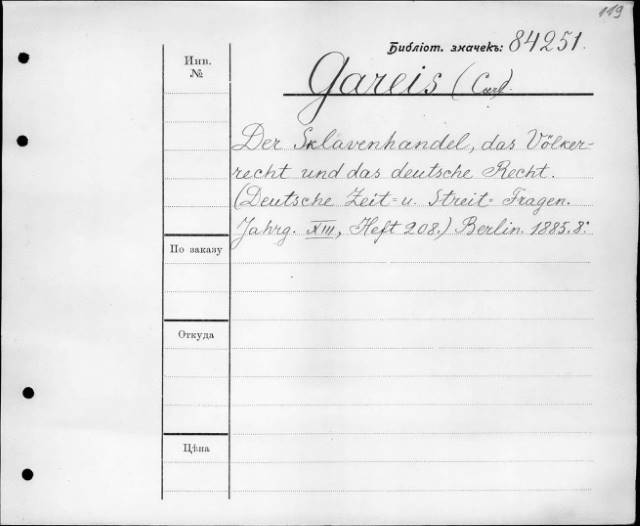 119
Библіот. значекъ: 84251.
Инв.
№
Gareis (Carl).
Der Sklavenhandel, das Völker-
recht und das deutsche Recht.
(Deutsche Zeit= u. Streit= Fragen.
Jahrg. XIII, Heft 208.) Berlin. 1885. 8º
По заказу
Откуда
Цѣна